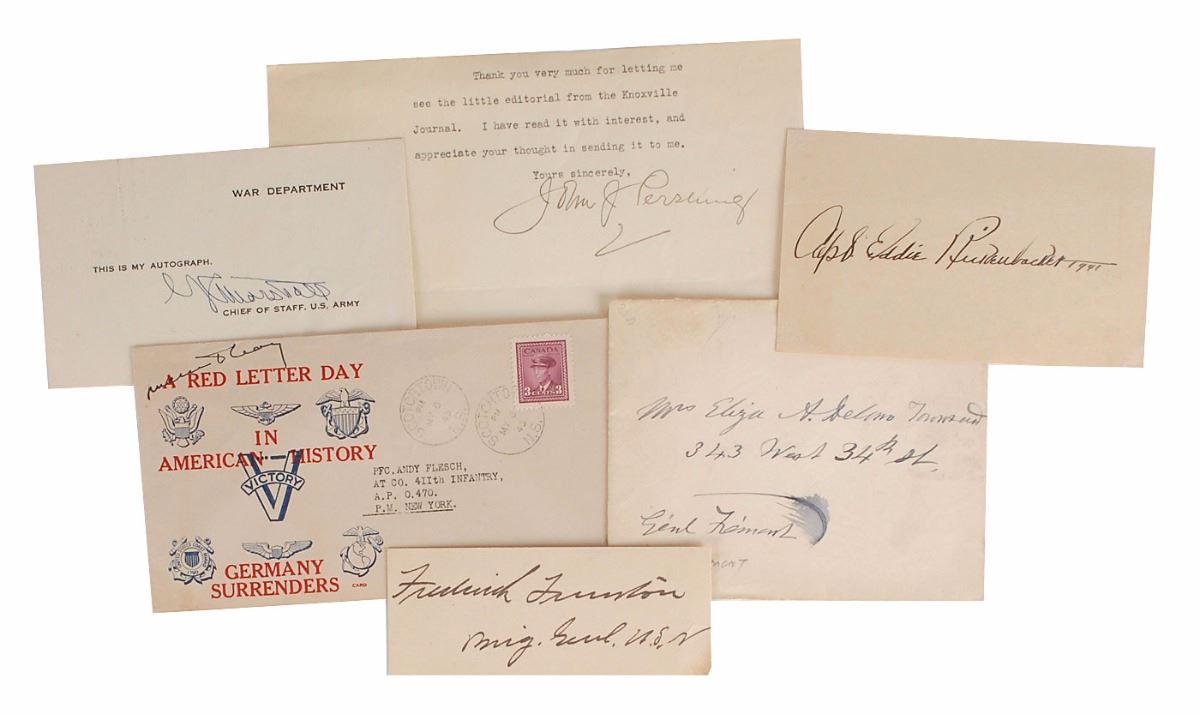 Thank you very much for letting me
see the little editorial from the Knoxville
Journal. I have read it with interest, and
appreciate your thought in sending it to me.
Yours sincerely,
John J Pershing
WAR DEPARTMENT
THIS IS MY AUTOGRAPH.
G C Marshall
CHIEF OF STAFF, U.S. ARMY
Capt Eddie Rickenbacker 1941
A RED LETTER DAY
IN
AMERICAN HISTORY
VICTORY
GERMANY
SURRENDERS
CARD
CANADA
3 CENTS 3
SCOTCHTOWN
N.S.
SCOTCHTOWN
N.S.
PFC. ANDY FLESCH,
AT CO. 411th INFANTRY,
A.P. O.470.
P.M. NEW YORK.
Mrs Eliza A. Delmo Townsend
343 West 34th St.
Genl Frémont
Frederick Funston
Brig. Genl. U.S.V